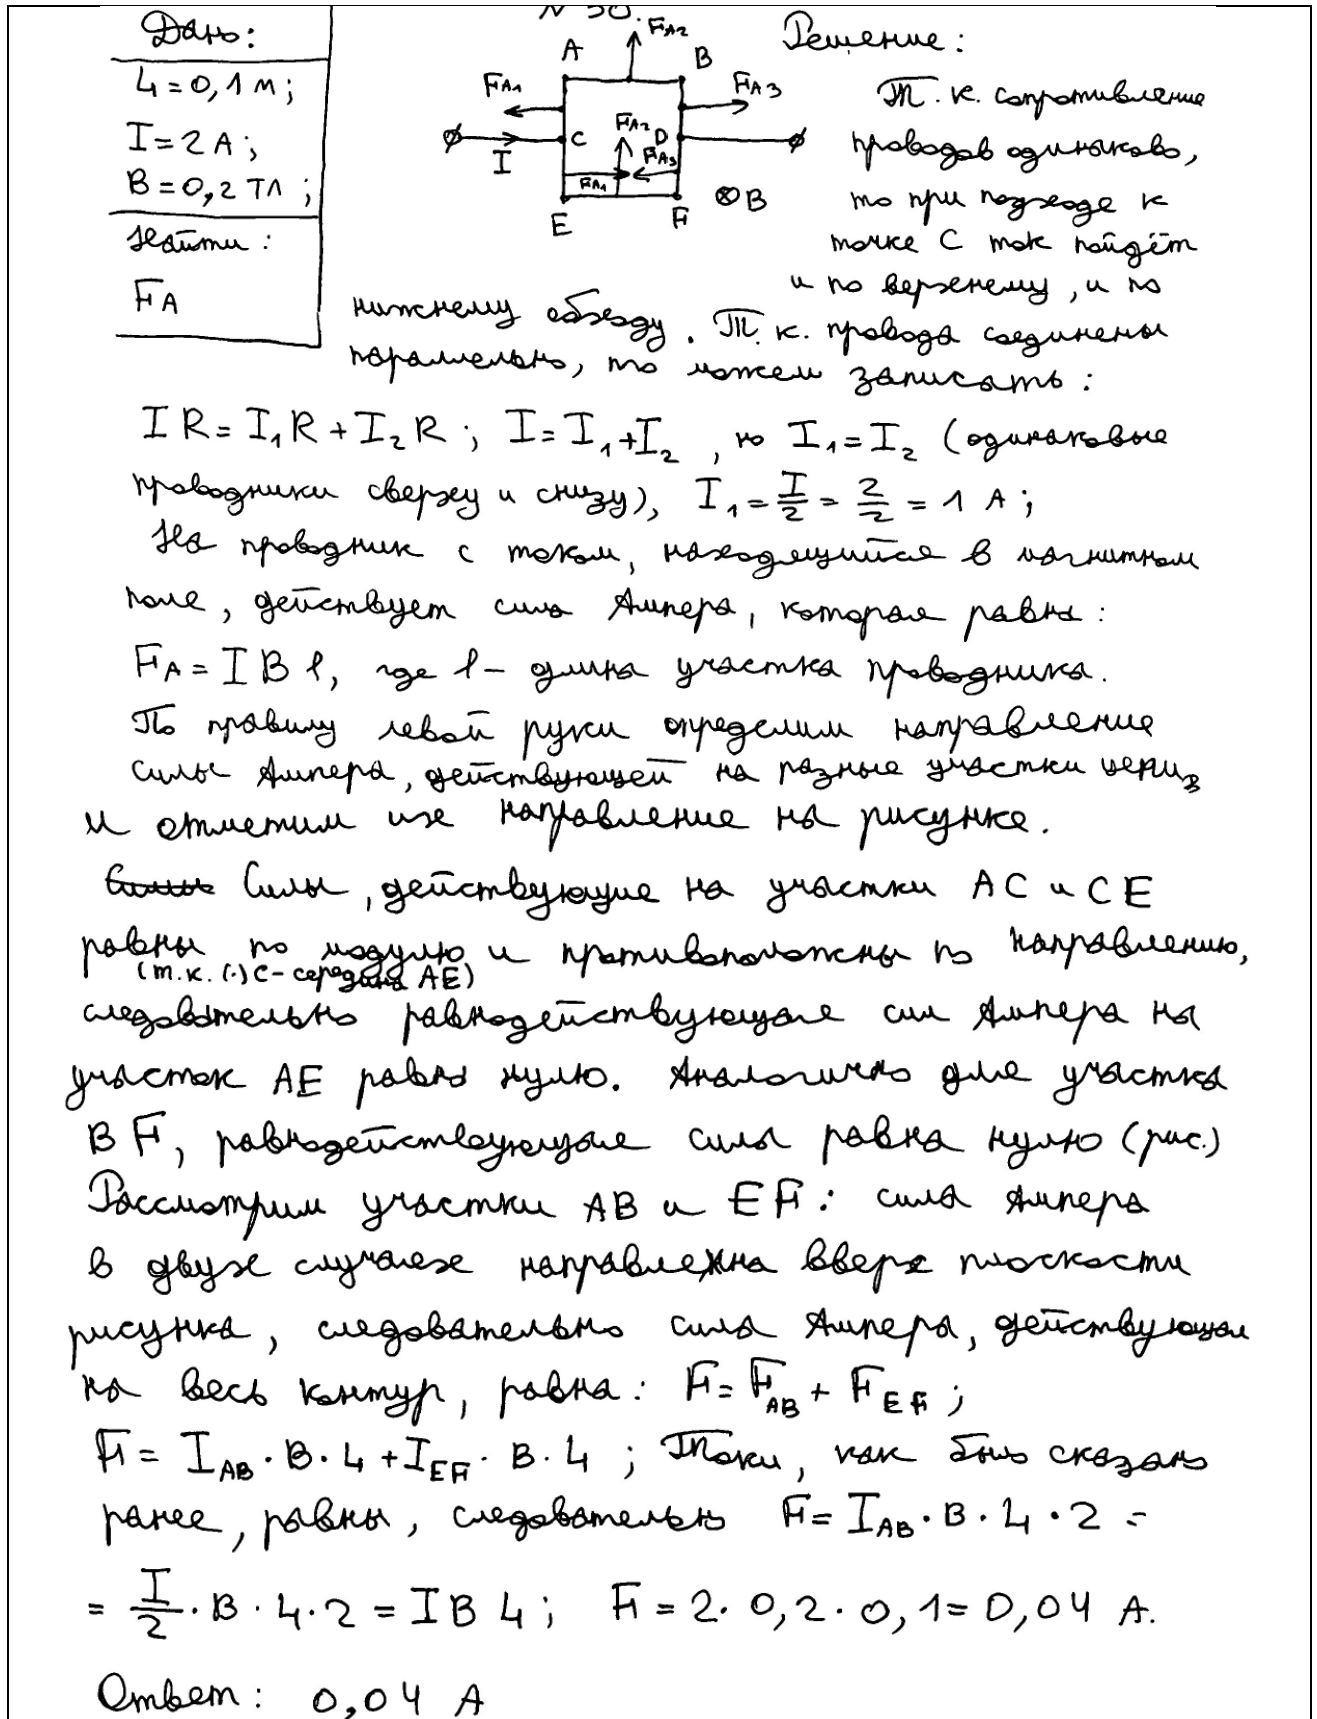 N 30.
Дано:
L = 0,1 м;
I = 2 А;
B = 0,2 Тл;
Найти:
FА
A B C D E F
FА1 FА2 FА3
FА1 FА2 FА3
I
⊗B
Решение:
Т. к. сопротивление
проводов одиныково,
то при подходе к
точке C ток пойдёт
и по верхнему, и по
нижнему обходу. Т. к. провода соединены
параллельно, то можем записать:
IR = I₁R + I₂R; I = I₁+I₂, но I₁ = I₂ (одинаковые
проводники сверху и снизу), I₁ = I/2 = 2/2 = 1 А;
На проводник с током, находящийся в магнитном
поле, действует сила Ампера, которая равна:
FА = I B l, где l – длина участка проводника.
По правилу левой руки определим направление
силы Ампера, действующей на разные участки цепи,
и отметим их направление на рисунке.
Силы, действующие на участки AC и CE
равны по модулю и противоположны по направлению,
(т.к. (·) C – середина AE)
следовательно равнодействующая сил Ампера на
участок AE равна нулю. Аналогично для участка
BF, равнодействующая силы равна нулю (рис.)
Рассмотрим участки AB и EF: сила Ампера
в двух случаях направлена вверх плоскости
рисунка, следовательно сила Ампера, действующая
на весь контур, равна: F = F_AB + F_EF;
F = I_AB · B · L + I_EF · B · L; Токи, как было сказано
ранее, равны, следовательно F = I_AB · B · L · 2 =
= I/2 · B · L · 2 = I B L; F = 2 · 0,2 · 0,1 = 0,04 А.
Ответ: 0,04 А